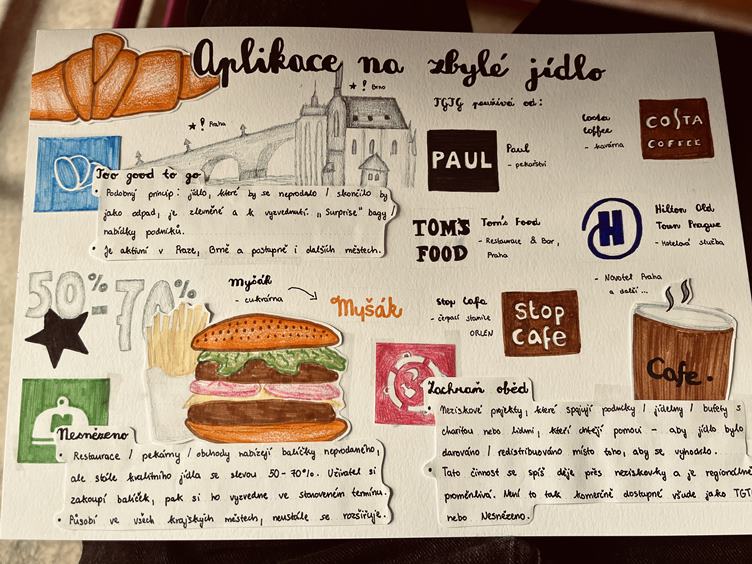 Aplikace na zbylé jídlo
! Brno
! Praha
TGTG používá od:
PAUL
Paul
- pekařství
Costa
Coffee
- kavárna
COSTA
COFFEE
Too good to go
Podobný princip: jídlo, které by se neprodalo / skončilo by
jako odpad, je zlevněné a k vyzvednutí. „Surprise" bagy /
nabídky podniků.
Je aktivní v Praze, Brně a postupně i dalších městech.
TOM'S
FOOD
Tom's Food
- Restaurace & Bar,
Praha
H
Hilton Old
Town Prague
- Hotelová služba
- Novotel Praha
a další...
50-70%
%
Myšák
- cukrárna
Myšák
Stop Cafe
- čerpací stanice
ORLEN
Stop
Cafe
Cafe.
Nesnězeno
Restaurace / pekárny / obchody nabízejí balíčky neprodaného,
ale stále kvalitního jídla se slevou 50-70%. Uživatel si
zakoupí balíček, pak si ho vyzvedne ve stanoveném termínu.
Působí ve všech krajských městech, neustále se rozšiřuje.
Zachraň oběd
Neziskové projekty, které spojují podniky / jídelny / bufety s
charitou nebo lidmi, kteří chtějí pomoci - aby jídlo bylo
darováno / redistribuováno místo toho, aby se vyhodilo.
Tato činnost se spíš děje přes neziskovky a je regionálně
proměnlivá. Není to tak komerčně dostupné všude jako TGTG
nebo Nesnězeno.